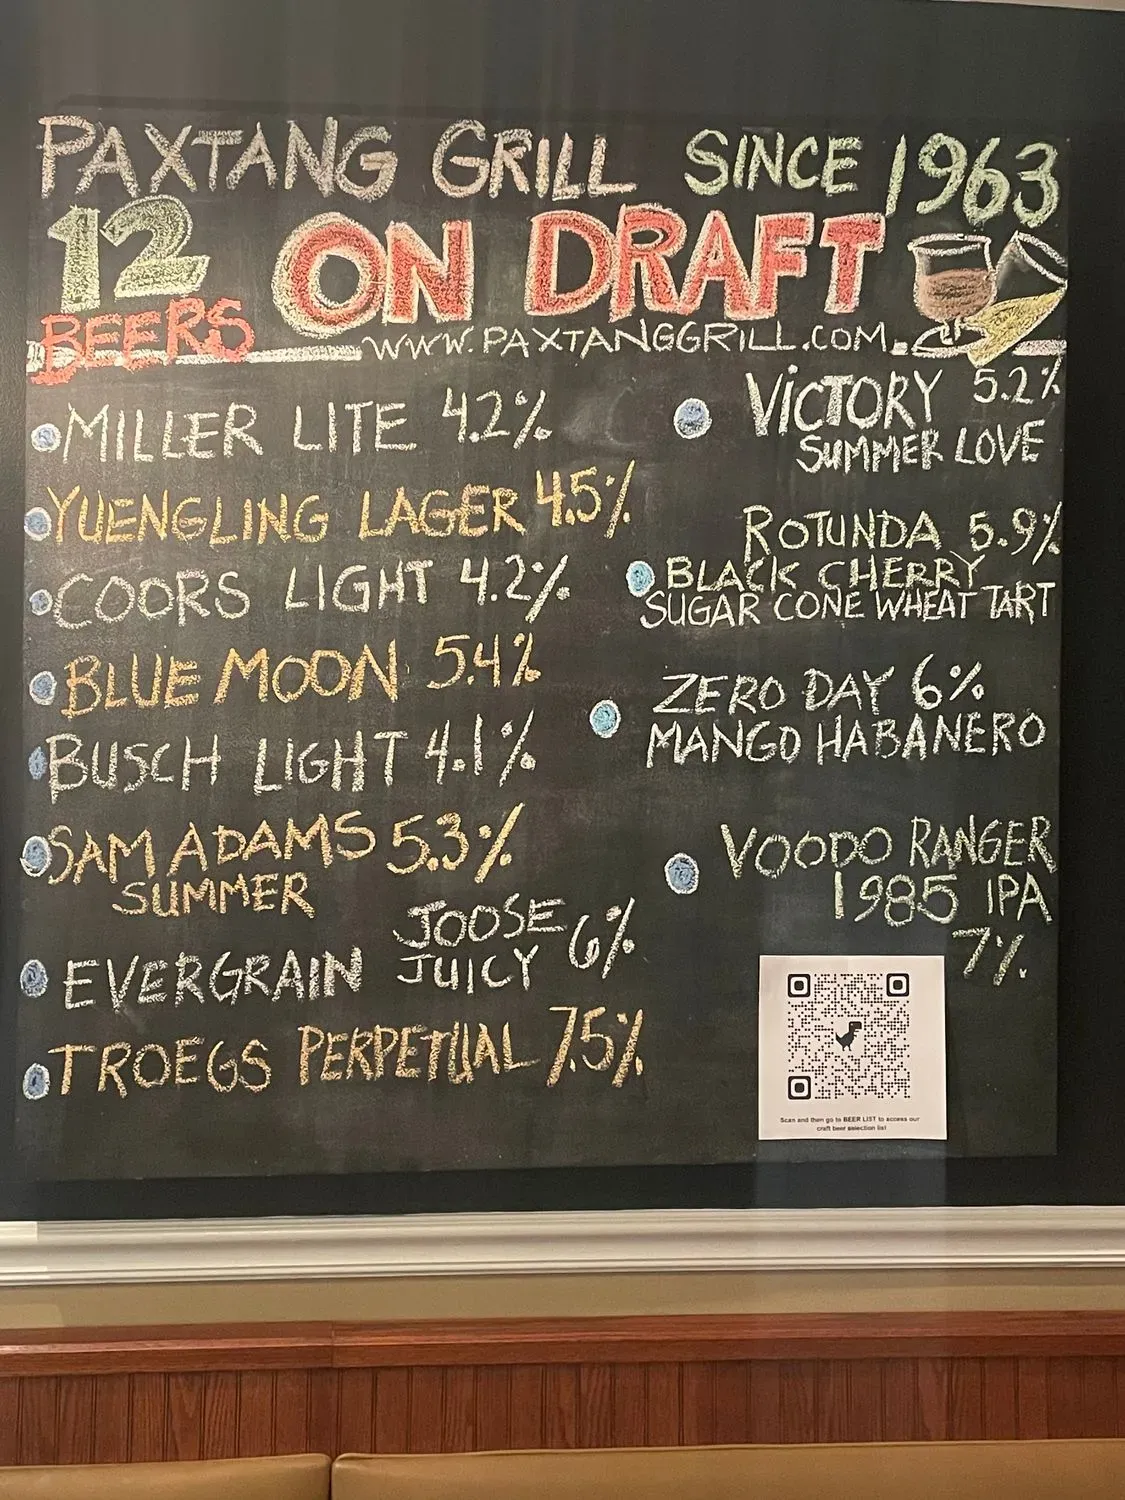 PAXTANG GRILL SINCE 1963
12 BEERS ON DRAFT
www.PAXTANGGRILL.COM
MILLER LITE 4.2%
YUENGLING LAGER 4.5%
COORS LIGHT 4.2%
BLUE MOON 5.4%
BUSCH LIGHT 4.1%
SAM ADAMS 5.3%
SUMMER
EVERGRAIN JOOSE JUICY 6%
TROEGS PERPETUAL 7.5%
VICTORY 5.2%
SUMMER LOVE
ROTUNDA 5.9%
BLACK CHERRY
SUGAR CONE WHEAT TART
ZERO DAY 6%
MANGO HABANERO
VOODO RANGER
1985 IPA
7%
Scan and then go to BEER LIST to access our
craft beer selection list